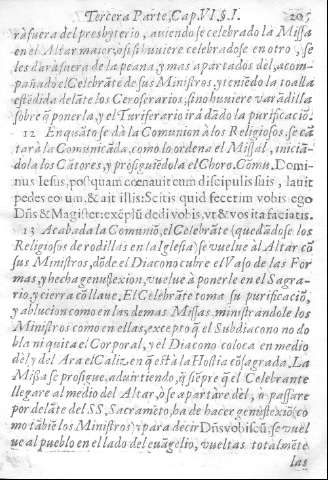 Tercera Parte, Cap. VI. §. I. 205
rà fuera del presbyterio, auiendose celebrado la Missa
en el Altar maior; o si se huuiere celebrado se en otro, se
les darà fuera de la peana, y mas apartados dél, acom-
pañado el Celebrãte de sus Ministros, y teniẽdo la toalla
estẽdida delãte los Ceroferarios, si no huuiere varãdilla
sobre q̃ ponerla, y el Turiferario irà dãdo la purificaciõ.
12 Enquãto se dà la Comunion à los Religiosos, se cã
tarà la Comunicãda, como lo ordena el Missal, iniciã-
dola los Cãtores, y prosiguiẽdola el Choro. Cõmu. Domi-
nus Iesus, postquam cœnauit cum discipulis suis, lauit
pedes eorum, & ait illis: Scitis quid fecerim vobis ego
Dñs & Magister: exẽplũ dedi vobis, vt & vos ita faciatis.
13 Acabada la Comuniõ, el Celebrãte (quedãdose los
Religiosos de rodillas en la Iglesia) se vuelue àl Altar cõ
sus Ministros, dõde el Diacono cubre el Vaso de las For
mas, y hecha genuflexion, vuelue à ponerle en el Sagra-
rio, y cierra cõ llaue. El Celebrãte toma su purificaciõ,
y ablucion como en las demas Missas, ministrandole los
Ministros como en ellas, excepto q̃ el Subdiacono no do
bla ni quita el Corporal, y el Diacono coloca en medio
dél, y del Ara el Caliz, en q̃ està la Hostia cõsagrada. La
Missa se prosigue, aduirtiendo, q̃ siẽpre q̃ el Celebrante
llegare al medio del Altar, ò se apartàre dèl, ò passare
por delãte del SS. Sacramẽto, ha de hacer genuflexiõ (co
mo tãbiẽ los Ministros) y para decir Dñs vobiscũ, se vuel
ue al pueblo en el lado del euãgelio, vueltas totalmẽte
las